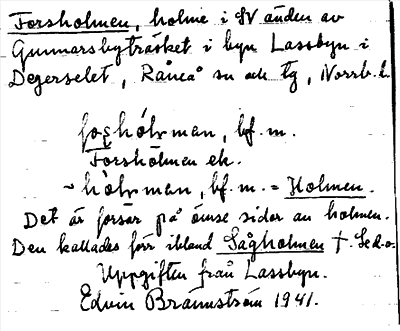 Forsholmen, holme i SV änden av
Gunnarsbyträsket i byn Lassbyn i
Degerselet, Råneå sn och tg, Norrb. l.
foʂhólmən, bf. m.
Forsholmen ek.
~ hólmən, bf. m. = Holmen.
Det är forsar på ömse sidor av holmen.
Den kallades förr ibland Sågholmen †. Se d.o.
Uppgiften från Lassbyn.
Edvin Brännström 1941.